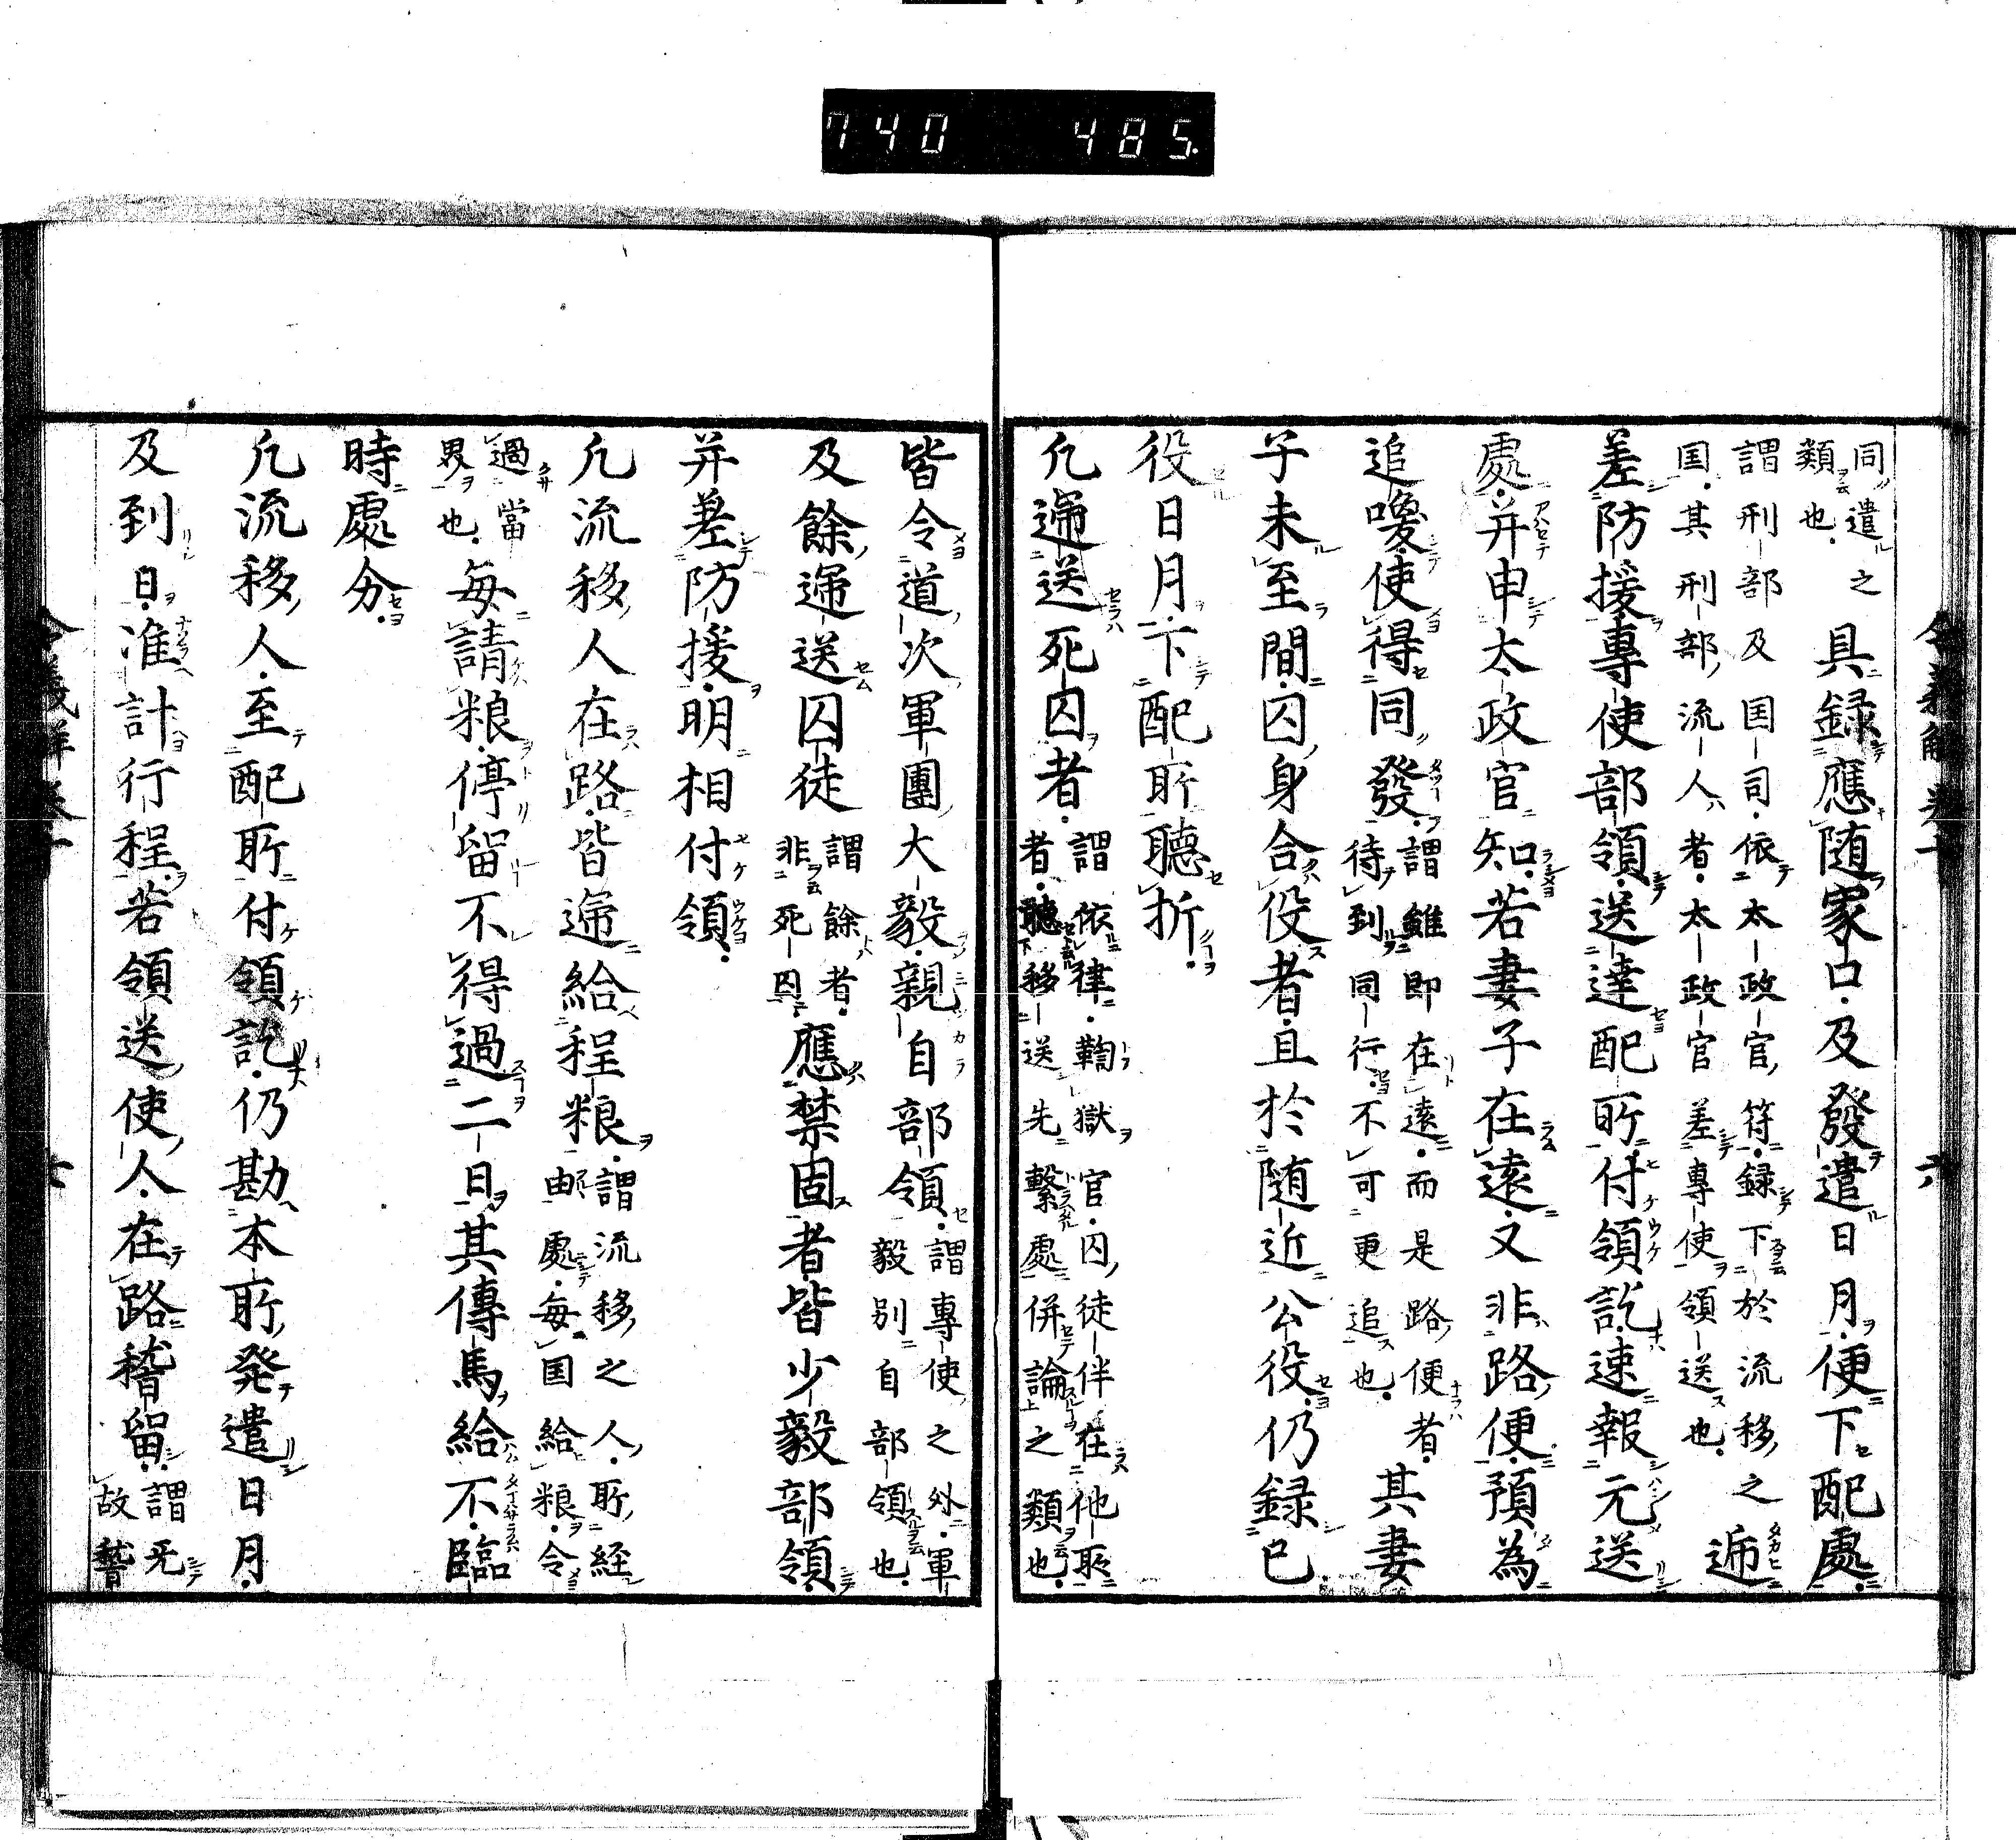 740 485.
令義解卷十 六
同遣之
類也
具録應随家口及發遣日月便下配處
謂刑部及国司依太政官符録下於流移之
国其刑部流人者太政官差專使領送也
逓
差防援專使部領送達配所付領訖速報元送
處并申太政官知若妻子在遠又非路便預為
追喚使得同發
謂雖即在遠而是路便者
待到同行不可更追也
其妻
子未至間囚身合役者且於随近公役仍録已
役日月下配所聽折
凢逓送死囚者
謂依律鞫獄官囚徒伴在他所
者聽移送先繫處併論之類也
皆令道次軍團大毅親自部領
謂專使之外軍
毅別自部領也
及餘逓送囚徒
謂餘者
非死囚
應禁固者皆少毅部領
并差防援明相付領
凢流移人在路皆逓給程粮
謂流移之人所經
由處毎国給粮令
過當
界也
毎請粮停留不得過二日其傳馬給不臨
時處分
凢流移人至配所付領訖仍勘本所發遣日月
及到日准計行程若領送使人在路稽留
謂无
故稽